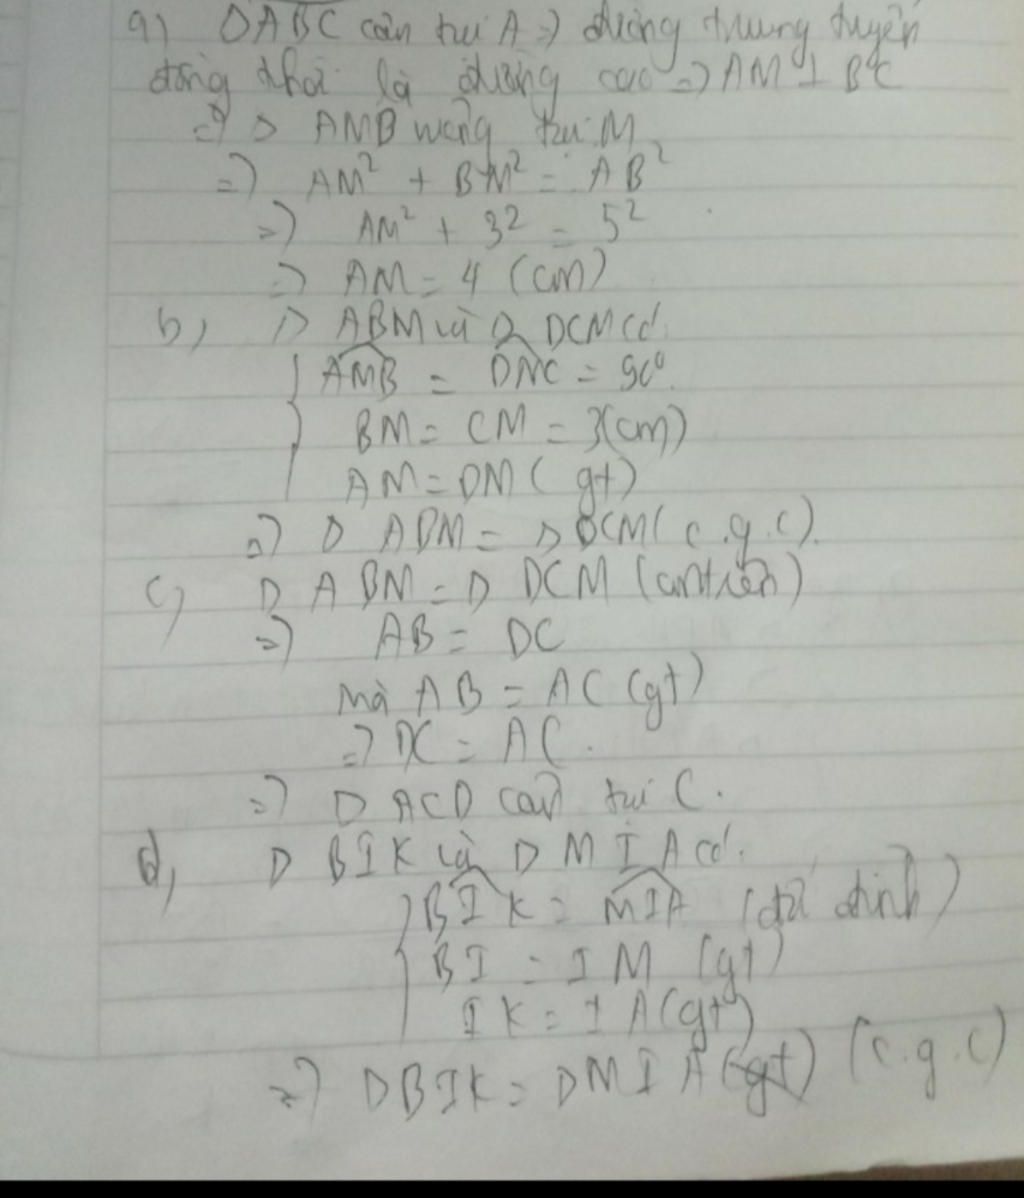 a) Δ ABC cân tại A => đường trung tuyến
đồng thời là đường cao => AM ⊥ BC
=> Δ AMB vuông tại M
=> AM² + BM² = AB²
=> AM² + 3² = 5²
=> AM = 4 (cm)
b) Δ ABM và Δ DCM có:
AMB = DMC = 90°
BM = CM = 3(cm)
AM = DM (gt)
=> Δ ABM = Δ DCM (c.g.c).
c) Δ ABM = Δ DCM (cm trên)
=> AB = DC
mà AB = AC (gt)
=> DC = AC.
=> Δ ACD cân tại C.
d) Δ BIK và Δ MIA có:
BIK = MIA (đối đỉnh)
BI = IM (gt)
IK = IA (gt)
=> ΔBIK = ΔMIA (gt) (c.g.c)